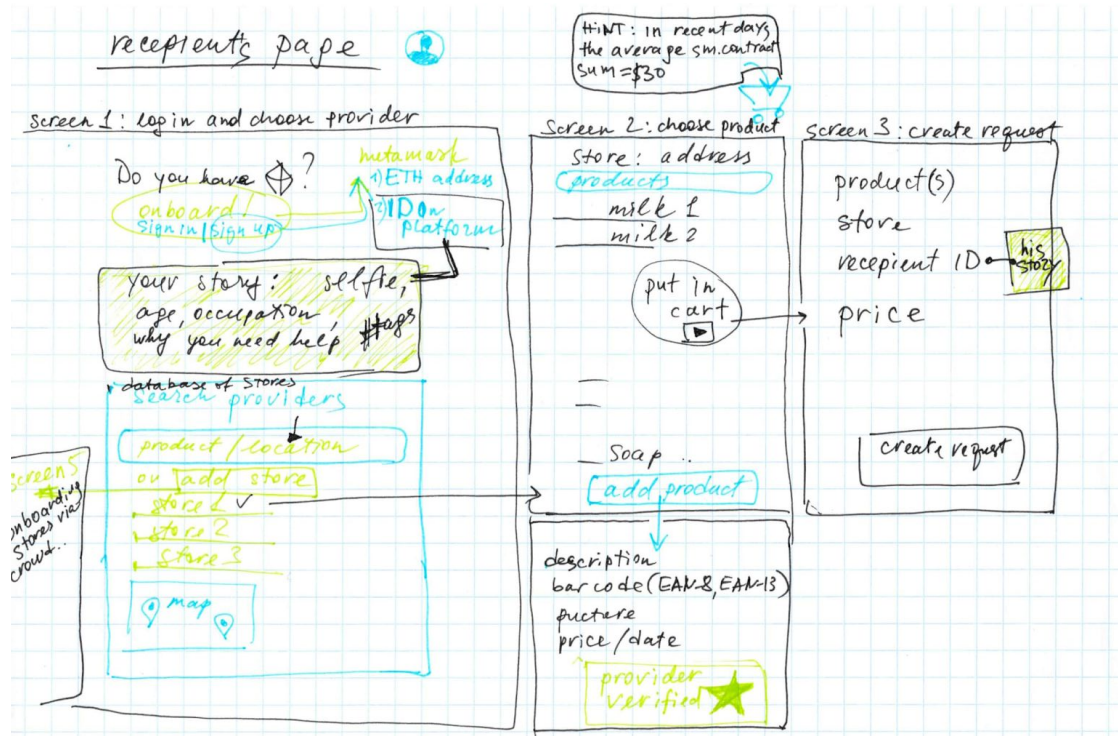 recepient's page
HiNT: in recent days
the average sm.contract
sum=$30
screen 1: login and choose provider
Do you have ?
onboard!
sign in/sign up
metamask
1) ETH address
2) ID on
platform
your story: selfie,
age, occupation,
why you need help, #tags
database of stores
search providers
product/location
or add store
store 1 ✓
store 2
store 3
map
screen 5
onboarding
stores via
crowd..
Screen 2: choose product
Store: address
products
milk 1
milk 2
put in
cart
Soap ..
add product
description
bar code (EAN-8, EAN-13)
pucture
price/date
provider
verified
screen 3: create request
product(s)
store
recepient ID
his
story
price
create request